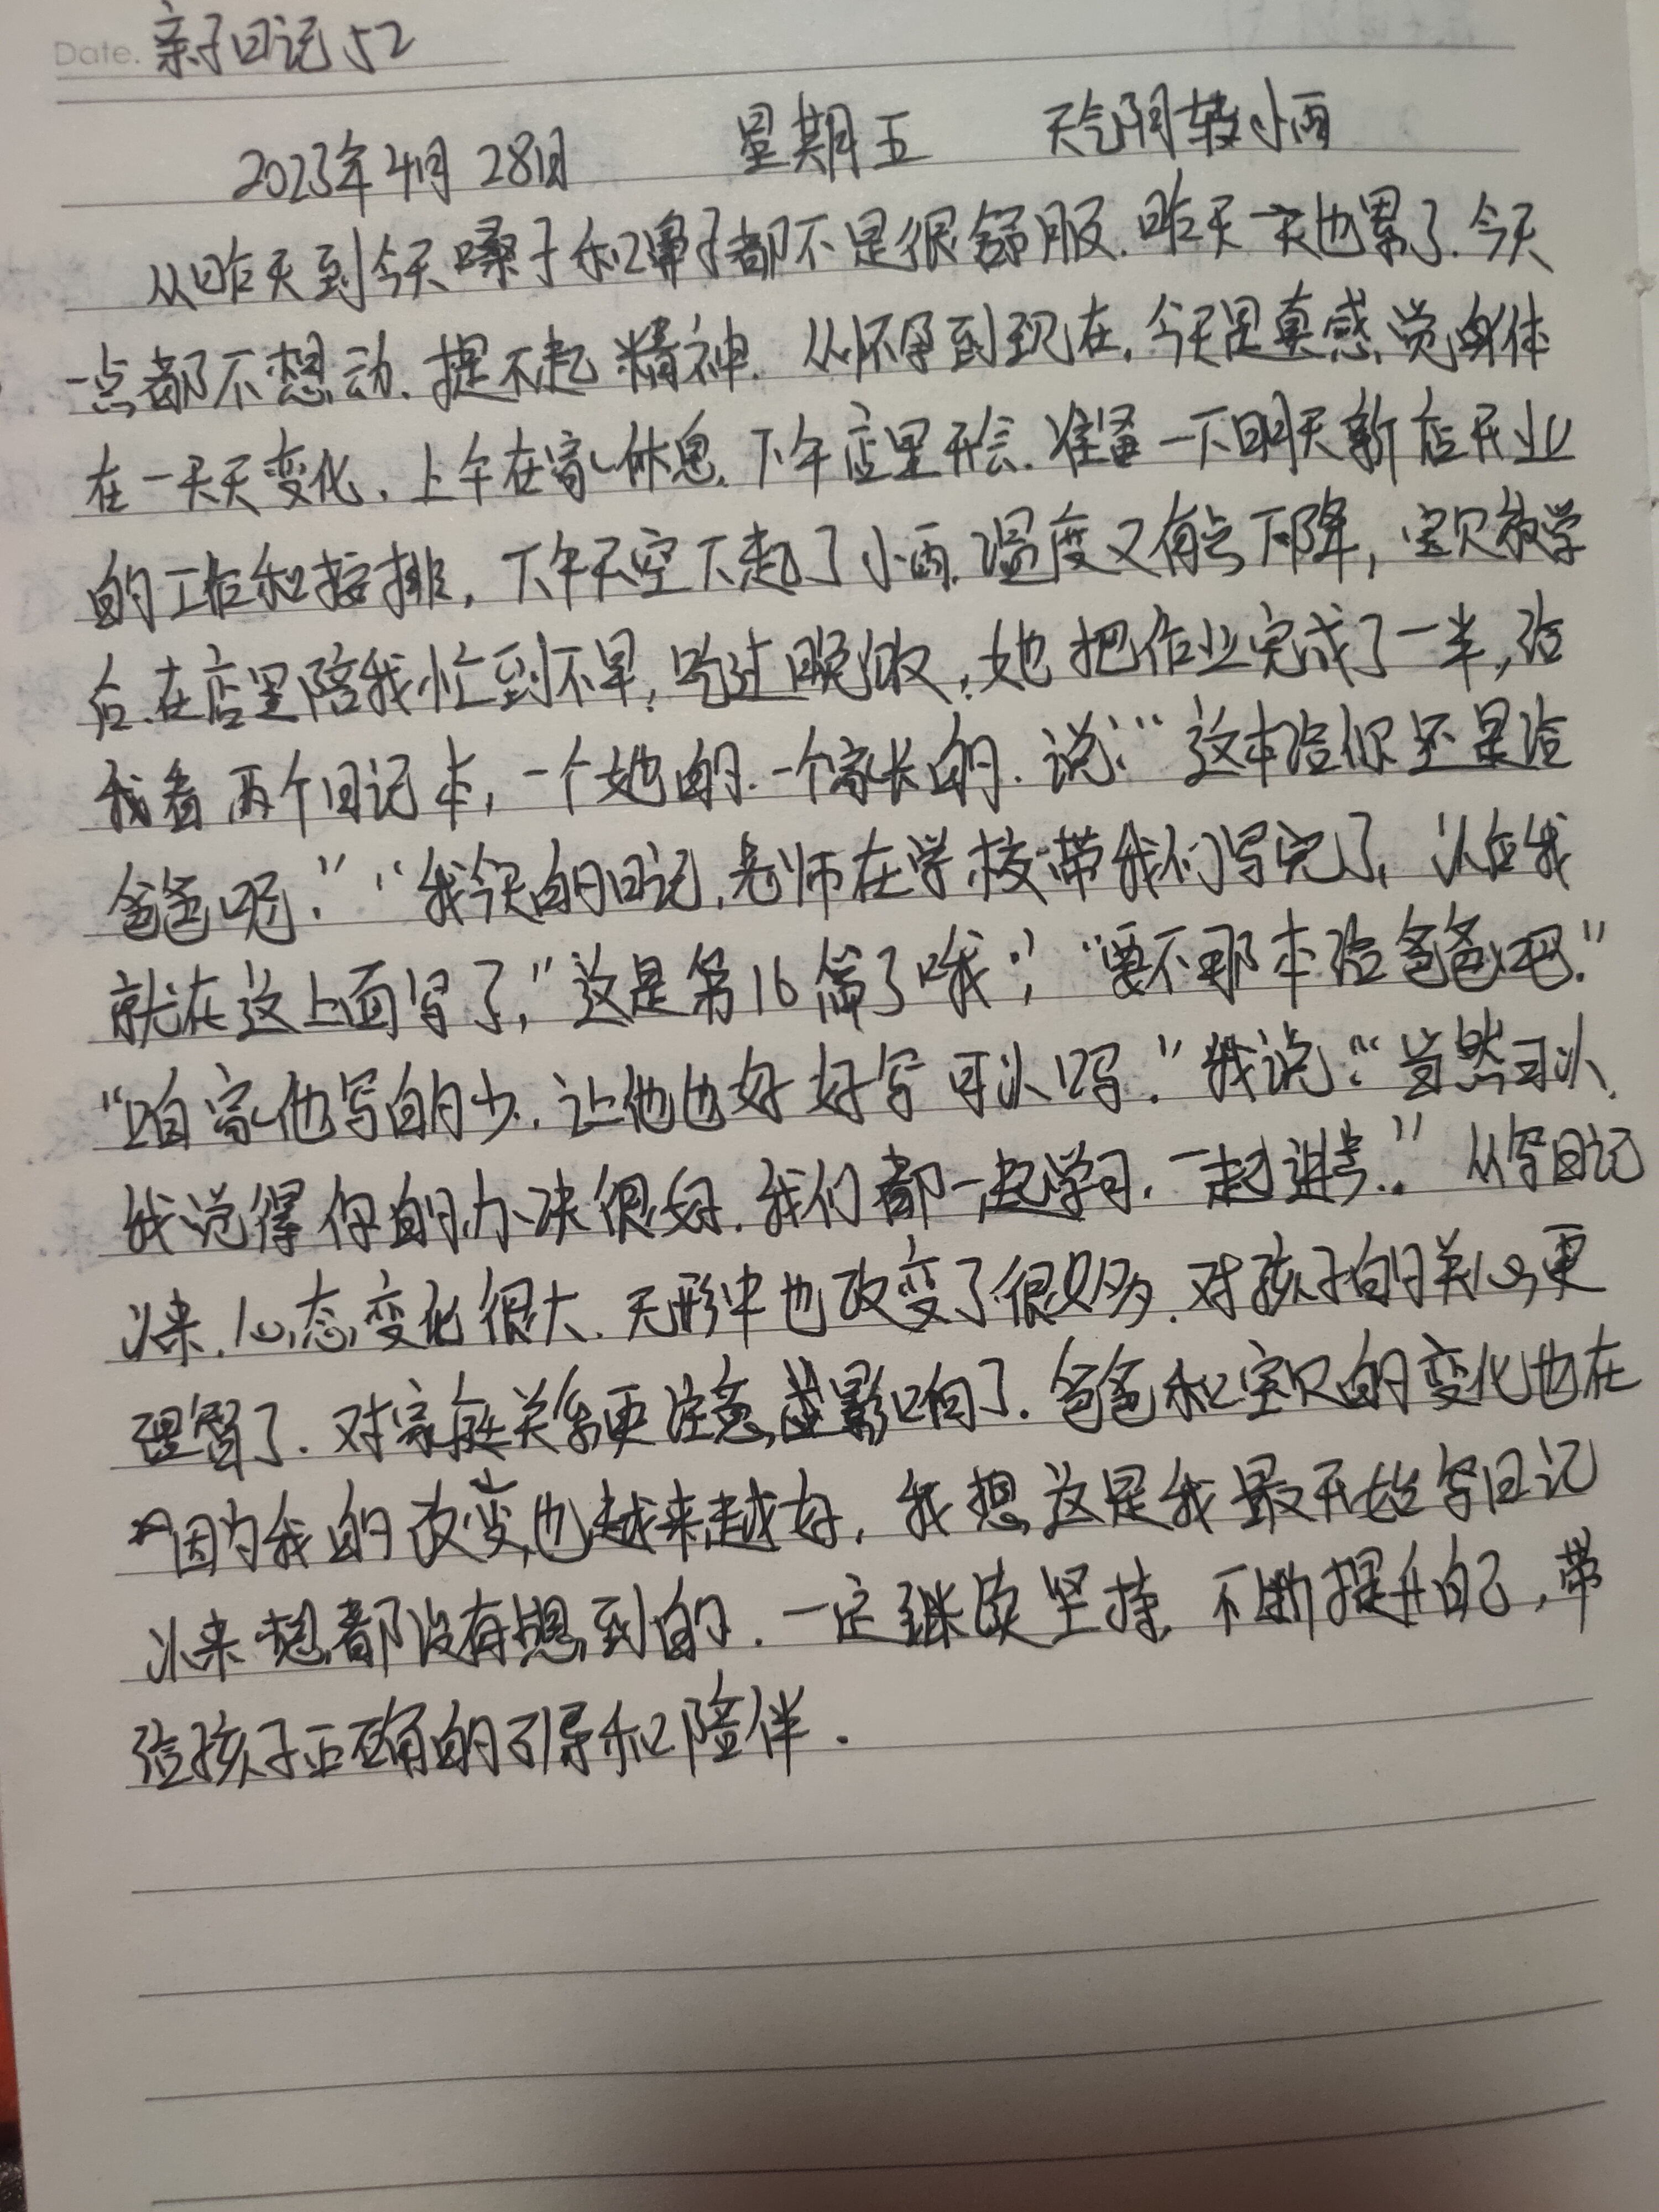 Date. 亲子日记52
2023年4月28日 星期五 天气阴转小雨
从昨天到今天嗓子和鼻子都不是很舒服.昨天一天也累了.今天
一点都不想动.提不起精神.从怀孕到现在,今天是真感觉身体
在一天天变化.上午在家休息.下午店里开会.准备一下明天新店开业
的工作和接排,下午天空下起了小雨.温度又有点下降,宝贝放学
后.在店里陪我忙到不早,吃过晚饭,她把作业完成了一半,给
我看两个日记本,一个她的.一个家长的.说:“这本给你还是给
爸爸呢.”“我今天的日记,老师在学校带我们写完了,以后我
就在这上面写了,”这是第16篇了哦;”“要不那本给爸爸吧.”
“咱家他写的少.让他也好好写可以吗.”我说:“当然可以.
我觉得你的办法很好.我们都一起学习.一起进步.”从写日记
以来.心态变化很大.无形中也改变了很多.对孩子的关心更
理智了.对家庭关系更注意影响了.爸爸和宝贝的变化也在
因为我的改变也越来越好.我想这是我最开始写日记
以来想都没有想到的.一定继续坚持.不断提升自己,带
给孩子正确的引导和陪伴.